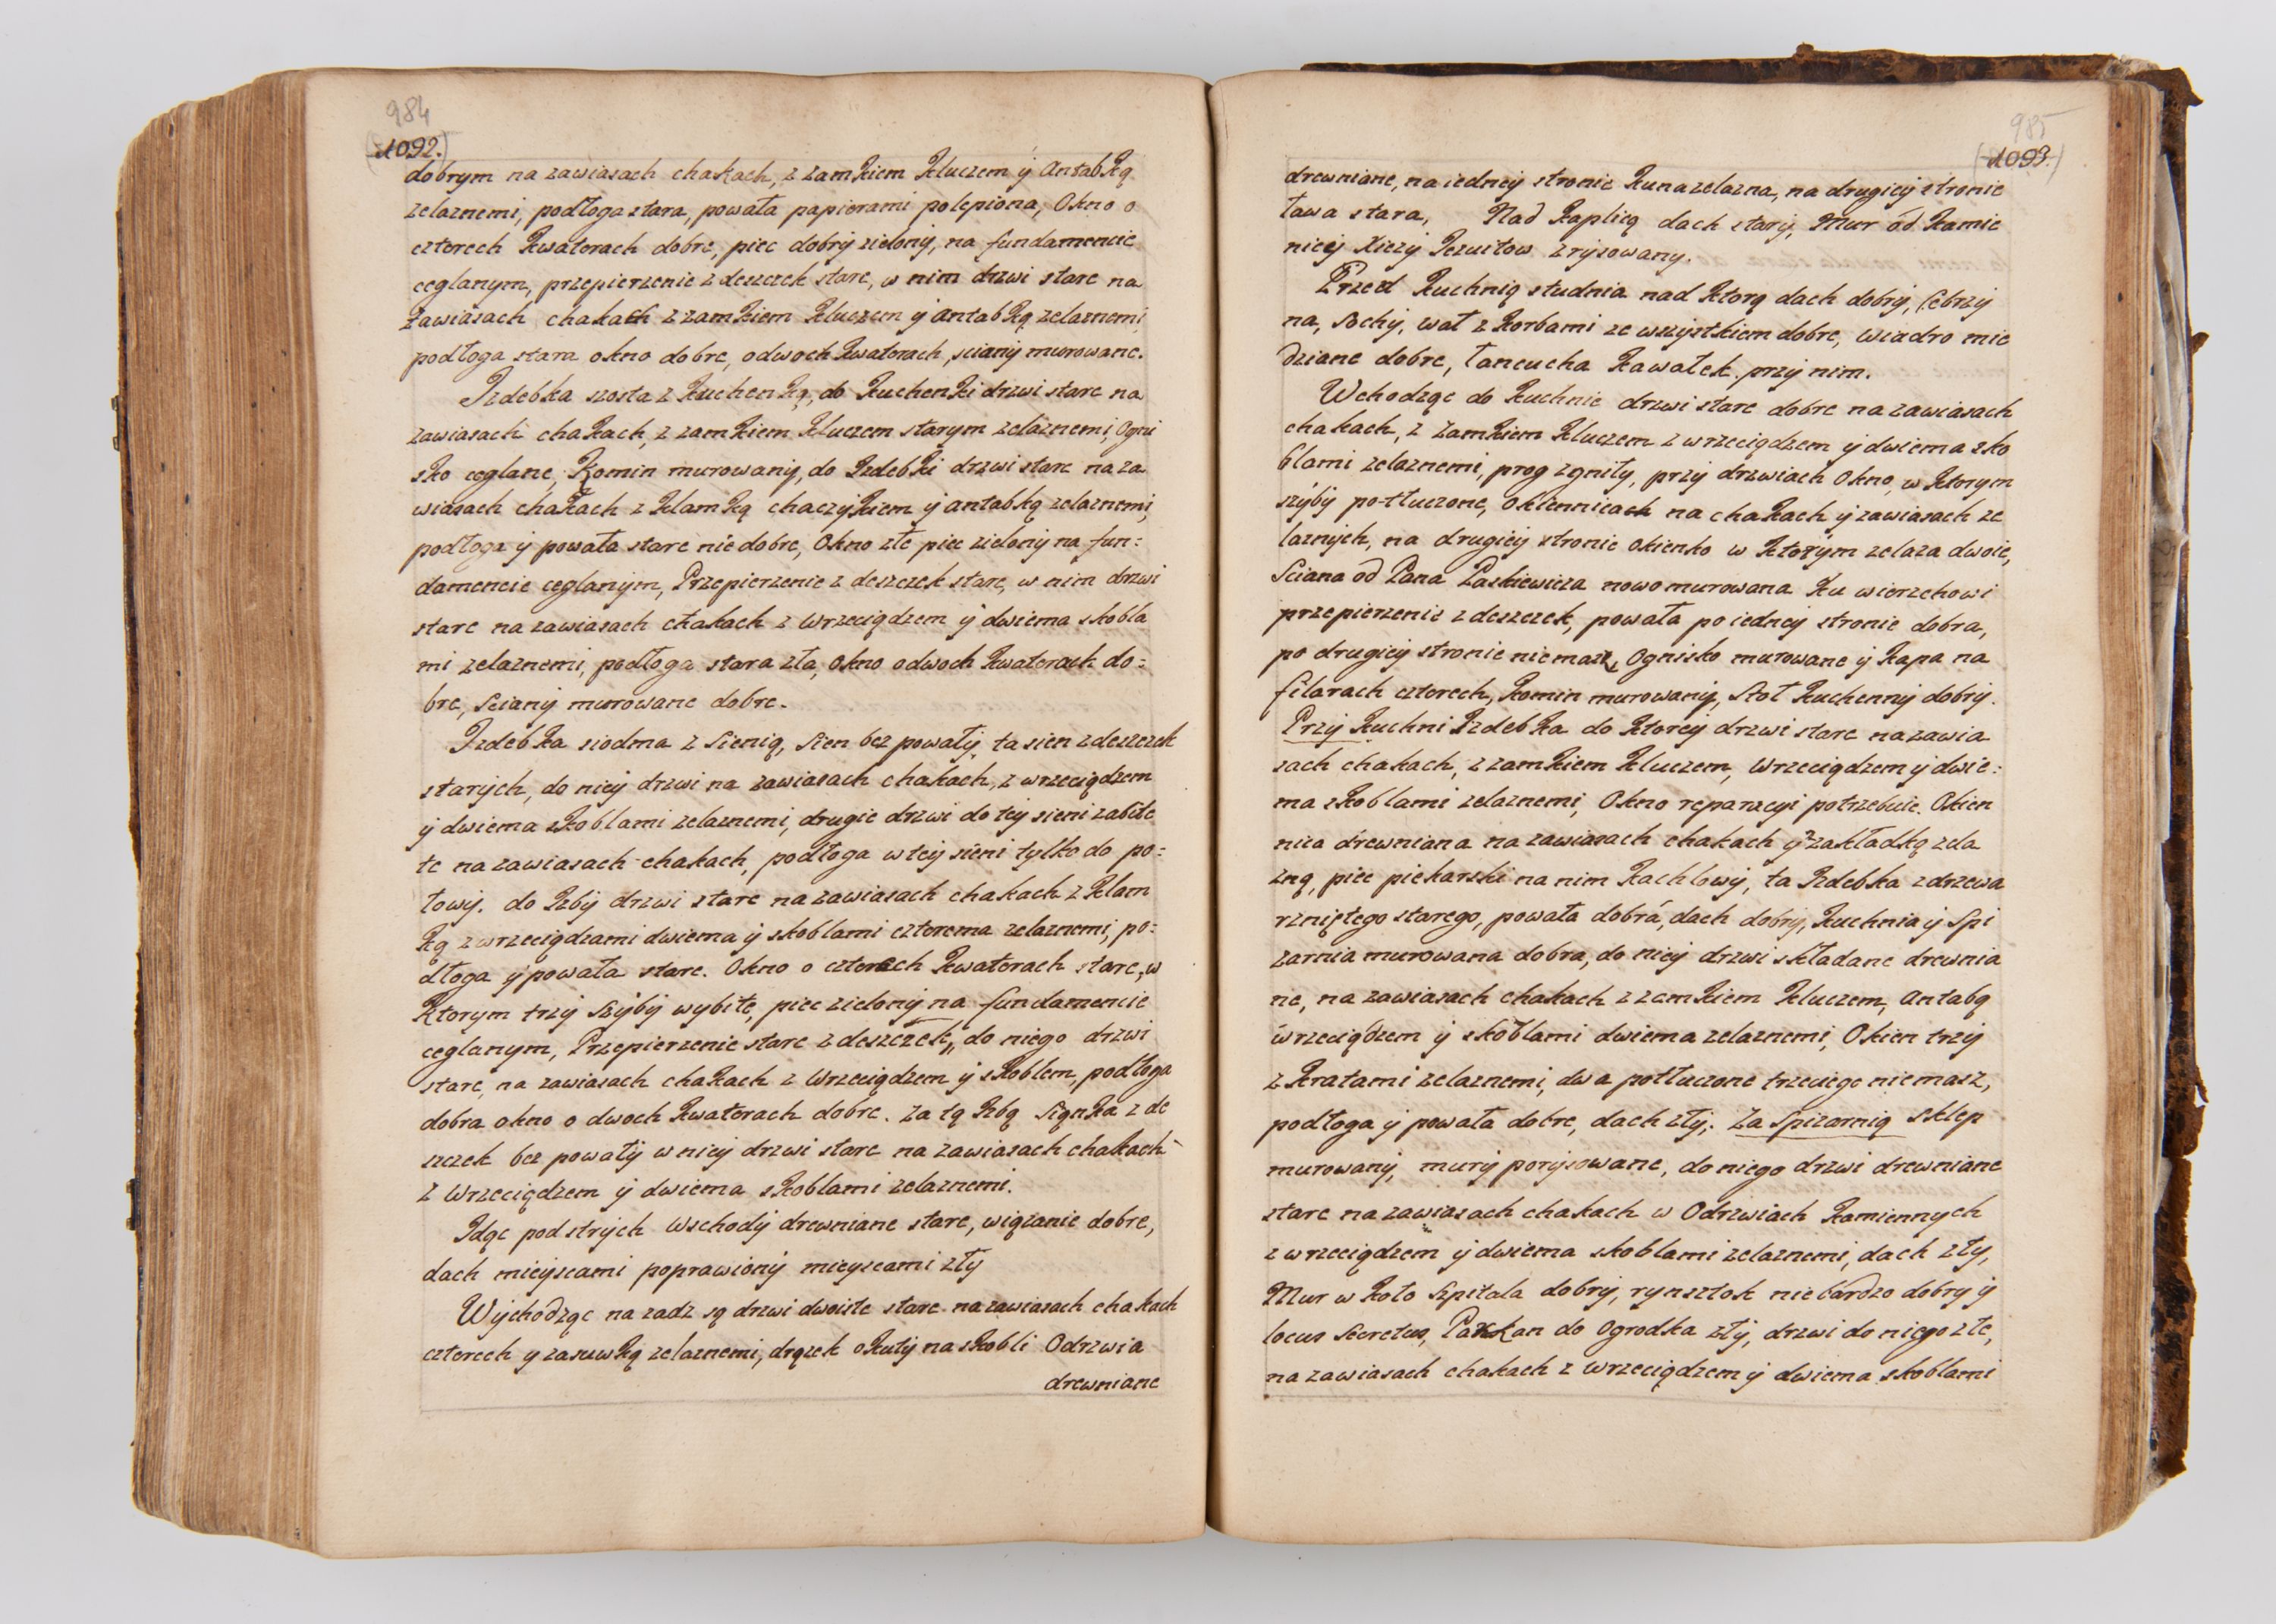 984
1092.
dobrym na zawiasach chakach, z zamkiem kluczem ÿ Antabką
zelaznemi, podłoga stara, powała papierami polepiona, Okno o
czterech kwaterach dobre, piec dobrÿ zielonÿ, na fundamencie
ceglanym, przepierzenie z deszczek stare, w nim drzwi stare na
zawiasach chakach z zamkiem kluczem ÿ antabką zelaznemi
podłoga stara okno dobre, odwoch kwaterach, scianÿ murowane.
Izdebka szosta z kuchenką, do kuchenki drzwi stare na
zawiasach chakach, z zamkiem kluczem starym zelaznemi, Ogni
sko ceglane, Komin murowanÿ, do Izdebki drzwi stare na za
wiasach chakach z klamką chaczÿkiem ÿ antabką zelaznemi,
podłoga ÿ powała stare nie dobre, Okno złe piec zielonÿ na fun:
damencie ceglanÿm, Przepierzenie z deszczek stare, w nim drzwi
stare na zawiasach chakach z wrzeciądzem ÿ dwiema skobla
mi zelaznemi, podłoga stara zła, okno odwoch kwaterach do:
bre, Scianÿ murowane dobre.
Izdebka siodma z Sienią, Sien bez powałÿ, ta sien z deszczek
starÿch, do nieÿ drzwi na zawiasach chakach, z wrzeciądzem
ÿ dwiema skoblami zelaznemi, drugie drzwi do teÿ sieni zabite
te na zawiasach chakach, podłoga w teÿ sieni tylko do po:
łowÿ. do Izbÿ drzwi stare na zawiasach chakach z klam
ką z wrzeciądzami dwiema ÿ skoblami czterema zelaznemi, po:
dłoga ÿ powała stare. Okno o czterech kwaterach stare, w
ktorym trzÿ Szÿbÿ wybite, piec zielonÿ na fundamencie
ceglanym, Przepierzenie stare z deszczek, do niego drzwi
stare, na zawiasach chakach z wrzeciądzem ÿ skoblem, podłoga
dobra okno o dwoch kwaterach dobre. Za tą Izbą Siąnka z de
szczek bez powałÿ w nieÿ drzwi stare na zawiasach chakach
z wrzeciądzem ÿ dwiema skoblami zelaznemi.
Idąc pod strÿch Wschodÿ drewniane stare, wiązanie dobre,
dach mieÿscami poprawionÿ mieyscami złÿ
Wÿchodząc na zadz są drzwi dwoiste stare na zawiasach chakach
czterech y zasuwką zelaznemi, drążek okutÿ na skobli Odrzwia
drewniane
985
1093.
drewniane, na iedneÿ stronie kuna zelazna, na drugieÿ stronie
ława stara, Nad kaplicą dach starÿ, Mur od kamie
niceÿ Xiezÿ Jezuitow zrÿsowany.
Przed kuchnią studnia nad ktorą dach dobrÿ, Cebrzÿ
na, Sochÿ, wał z korbami ze wszÿstkiem dobre, wiadro mie
dziane dobre, łancucha kawałek przÿ nim.
Wchodząc do kuchnie drzwi stare dobre na zawiasach
chakach, z zamkiem kluczem z wrzeciądzem ÿ dwiema sko
blami zelaznemi, prog zgniłÿ, przÿ drzwiach Okno, w ktorym
szÿbÿ potłuczone, okiennicach na chakach ÿ zawiasach ze
laznÿch, na drugieÿ stronie okienko w ktorÿm zelaza dwoie,
Sciana od Pana Paskiewicza nowo murowana ku wierzchowi
przepierzenie z deszczek, powała po iedneÿ stronie dobra,
po drugieÿ stronie niemasz, Ognisko murowane ÿ kapa na
filarach czterech, komin murowanÿ, Stoł kuchennÿ dobrÿ.
Przÿ kuchni Izdebka do ktoreÿ drzwi stare na zawia
sach chakach, z zamkiem kluczem, wrzeciądzem ÿ dwie:
ma skoblami zelaznemi, Okno reparacyi potrzebuie. Okien
nica drewniana na zawiasach chakach ÿ zakładką zela
zną, piec piekarski na nim kachlowÿ, ta Izdebka z drzewa
rzniętego starego, powała dobra, dach dobrÿ, kuchnia ÿ Spi
zarnia murowana dobra, do nieÿ drzwi składane drewnia
ne, na zawiasach chakach z zamkiem kluczem, Antabą
wrzeciądzem ÿ skoblami dwiema zelaznemi, Okien trzÿ
z kratami zelaznemi, dwa potłuczone trzeciego niemasz,
podłoga ÿ powała dobre, dach złÿ. Za Spizarnią Sklep
murowanÿ, murÿ porÿsowane, do niego drzwi drewniane
stare na zawiasach chakach w Odrzwiach kamiennych
z wrzeciądzem ÿ dwiema skoblami zelaznemi, dach złÿ,
Mur w koło Szpitala dobrÿ, rynsztok nie bardzo dobry ÿ
locus Secretus, Parkan do Ogrodka złÿ, drzwi do niego złe,
na zawiasach chakach z wrzeciądzem ÿ dwiema skoblami